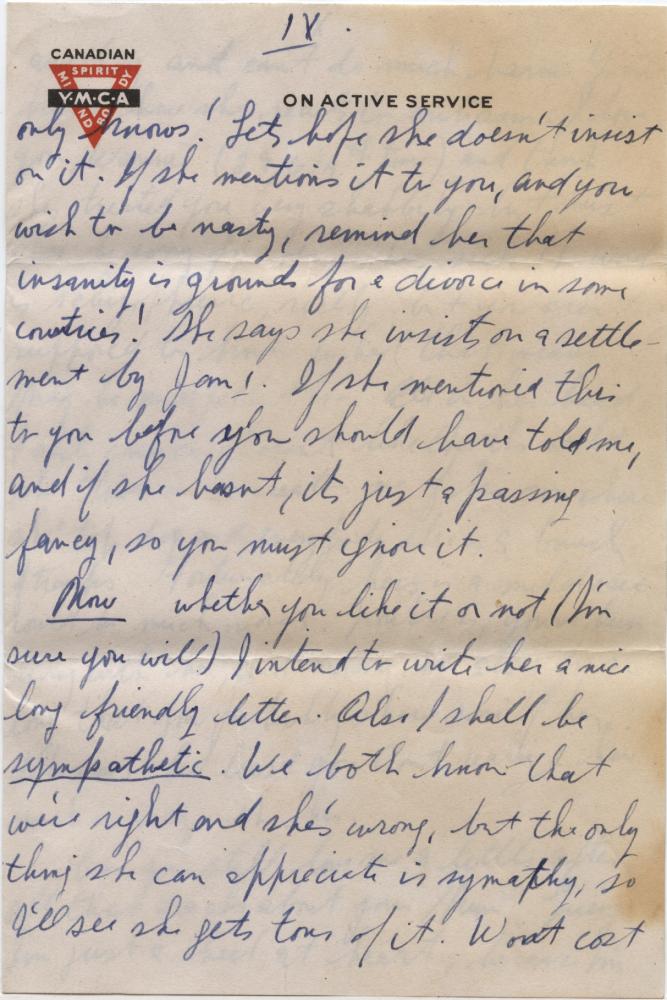 IX.
CANADIAN
SPIRIT
MIND
BODY
Y·M·C·A
ON ACTIVE SERVICE
only knows! Lets hope she doesn't insist
on it. If she mentions it to you, and you
wish to be nasty, remind her that
insanity is grounds for a divorce in some
countries! She says she insists on a settle-
ment by Jan 1. If she mentioned this
to you before you should have told me,
and if she hasnt, its just a passing
fancy, so you must ignore it.
Now whether you like it or not (I'm
sure you will) I intend to write her a nice
long friendly letter. Also I shall be
sympathetic. We both know that
we're right and she's wrong, but the only
thing she can appreciate is symapthy, so
I'll see she gets tons of it. Wont cost